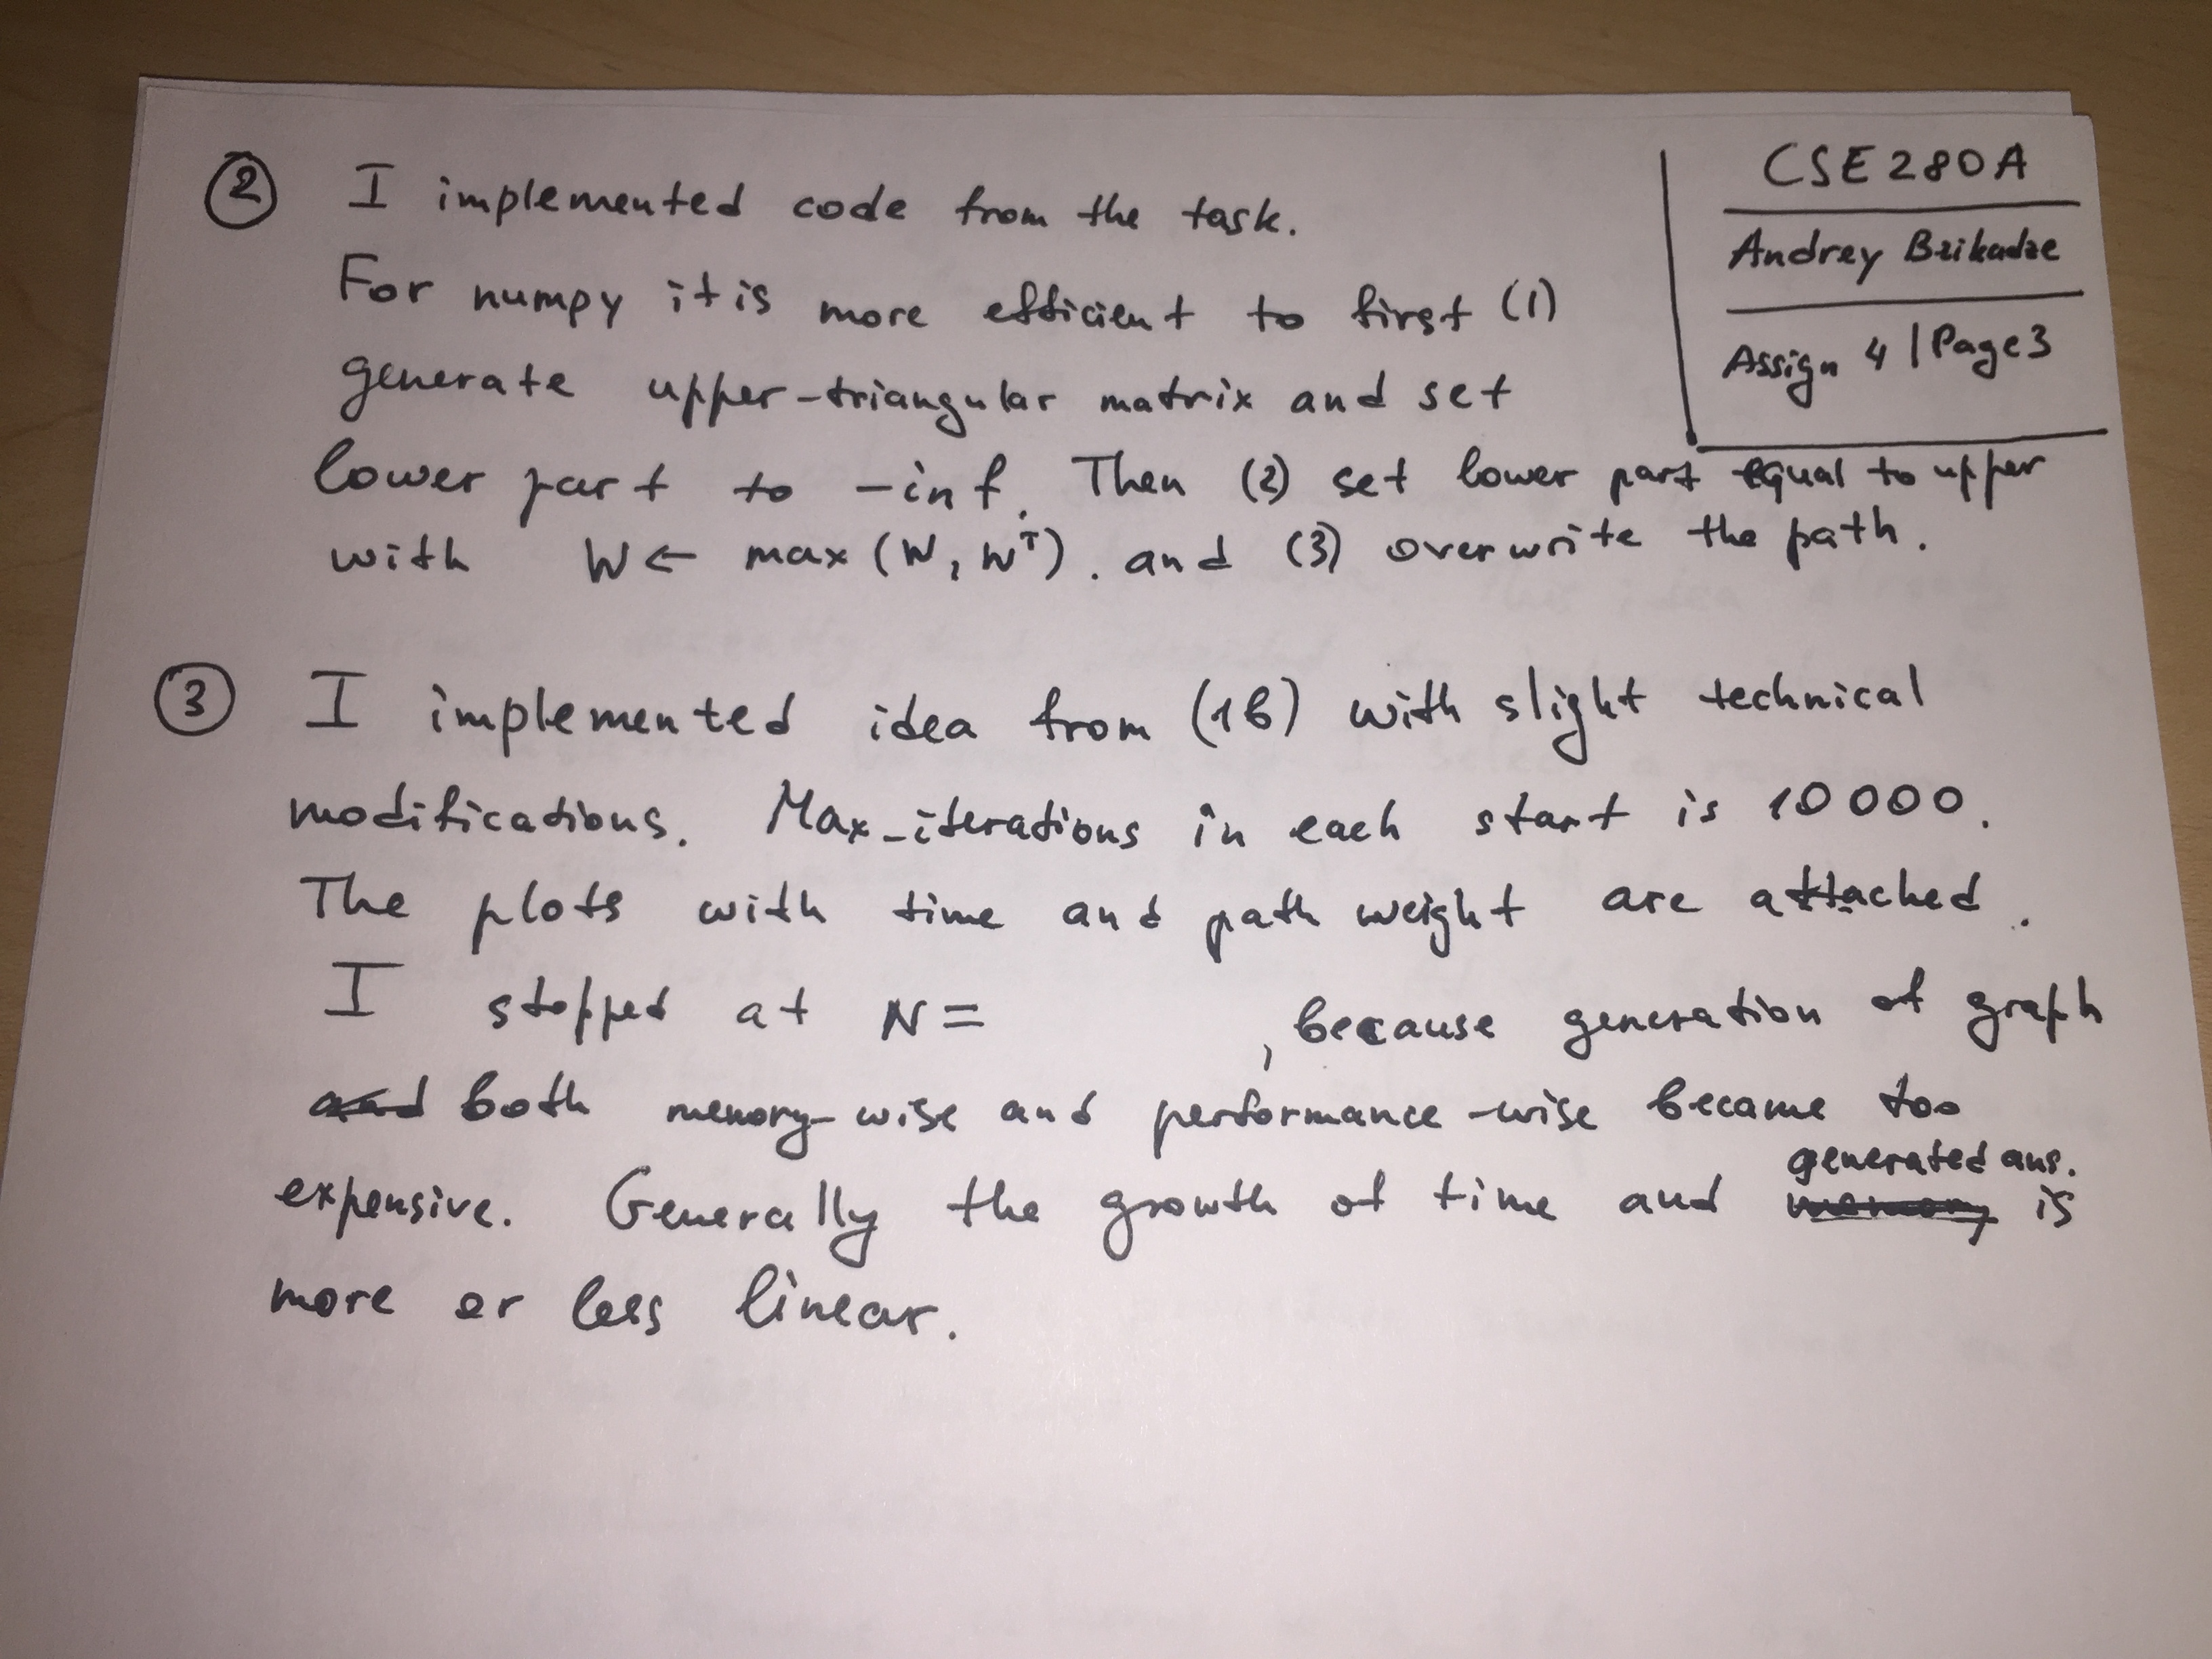 CSE 280A
Andrey Bzikadze
Assign 4 | Page 3
② I implemented code from the task.
For numpy it is more efficient to first (1)
generate upper-triangular matrix and set
lower part to -inf. Then (2) set lower part equal to upper
with W ← max (W, Wᵀ). and (3) overwrite the path.
③ I implemented idea from (1b) with slight technical
modifications. Max-iterations in each start is 10 000.
The plots with time and path weight are attached.
I stopped at N= , because generation of graph
and both memory-wise and performance-wise became too
generated ans.
expensive. Generally the growth of time and memory is
more or less linear.